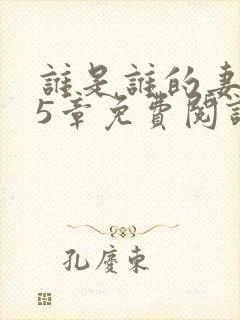 誰是誰的妻
5章免費閱讀
孔慶東